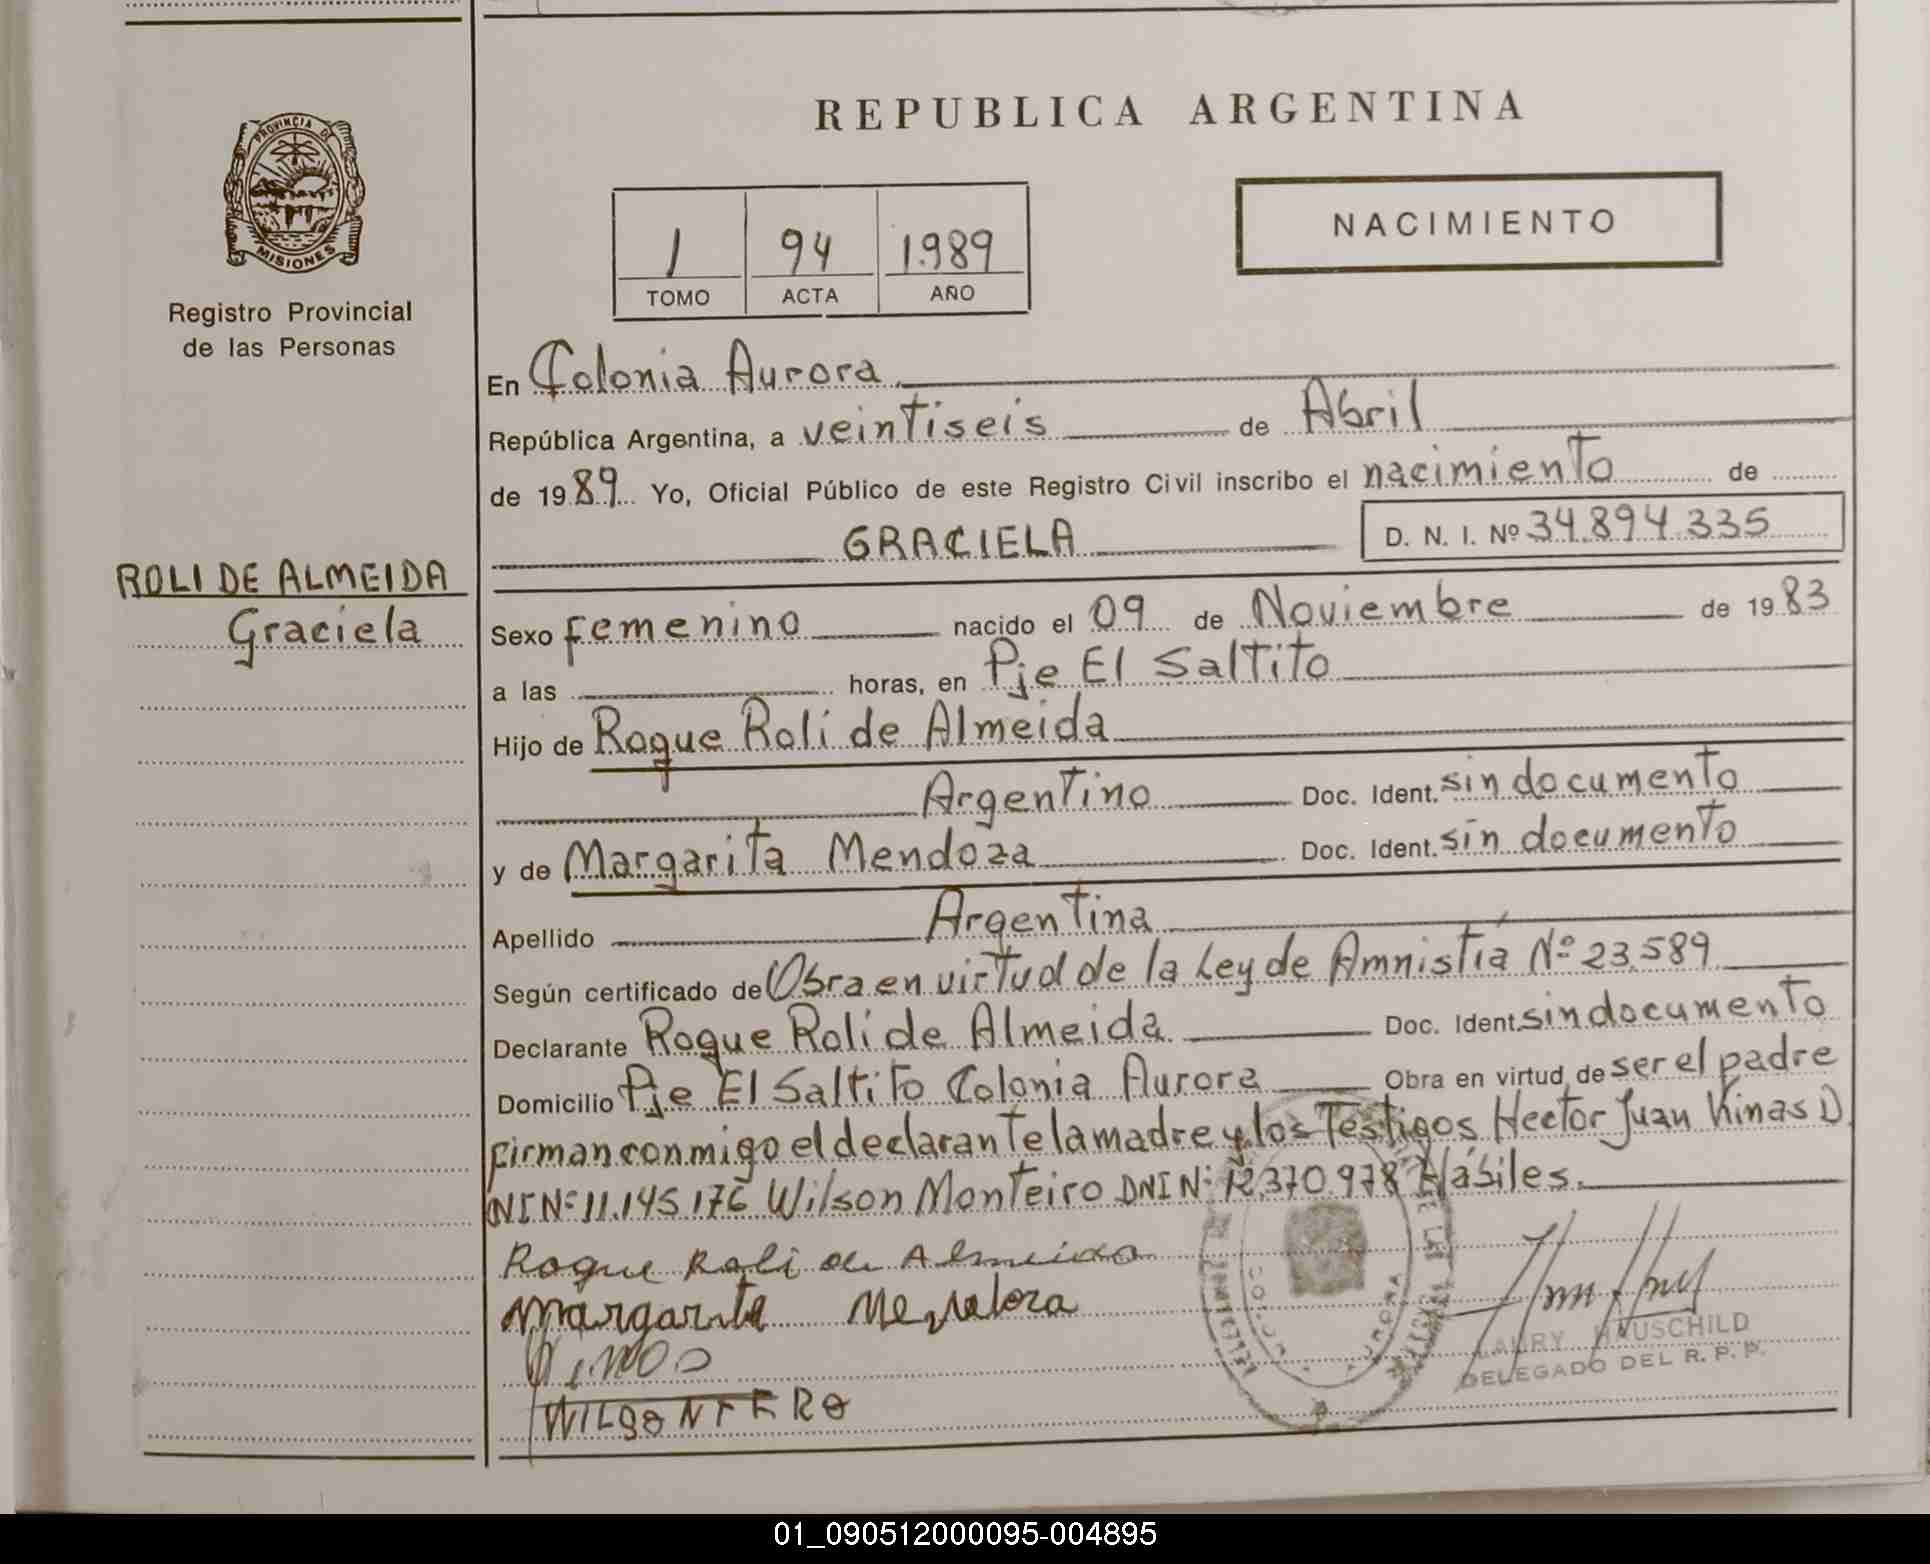 PROVINCIA DE
MISIONES
Registro Provincial
de las Personas
ROLI DE ALMEIDA
Graciela
REPUBLICA ARGENTINA
1 94 1.989
TOMO ACTA AÑO
NACIMIENTO
En Colonia Aurora
República Argentina, a veintiseis de Abril
de 1989 Yo, Oficial Público de este Registro Civil inscribo el nacimiento de
GRACIELA D. N. I. Nº 34.894.335
Sexo femenino nacido el 09 de Noviembre de 1983
a las horas, en Pje El Saltito
Hijo de Roque Roli de Almeida
Argentino Doc. Ident. sin documento
y de Margarita Mendoza Doc. Ident. sin documento
Apellido Argentina
Según certificado de Obra en virtud de la Ley de Amnistía Nº 23.589
Declarante Roque Roli de Almeida Doc. Ident. sin documento
Domicilio Pje El Saltito Colonia Aurora Obra en virtud de ser el padre
firman conmigo el declarante la madre y los Testigos Hector Juan Kinas D
NI Nº 11.145.176 Wilson Monteiro DNI Nº 12.370.978 Hábiles.
Roque Roli de Almeida
Margarita
COLONIA AURORA
LAURY HAUSCHILD
DELEGADO DEL R. P. P.
01_090512000095-004895